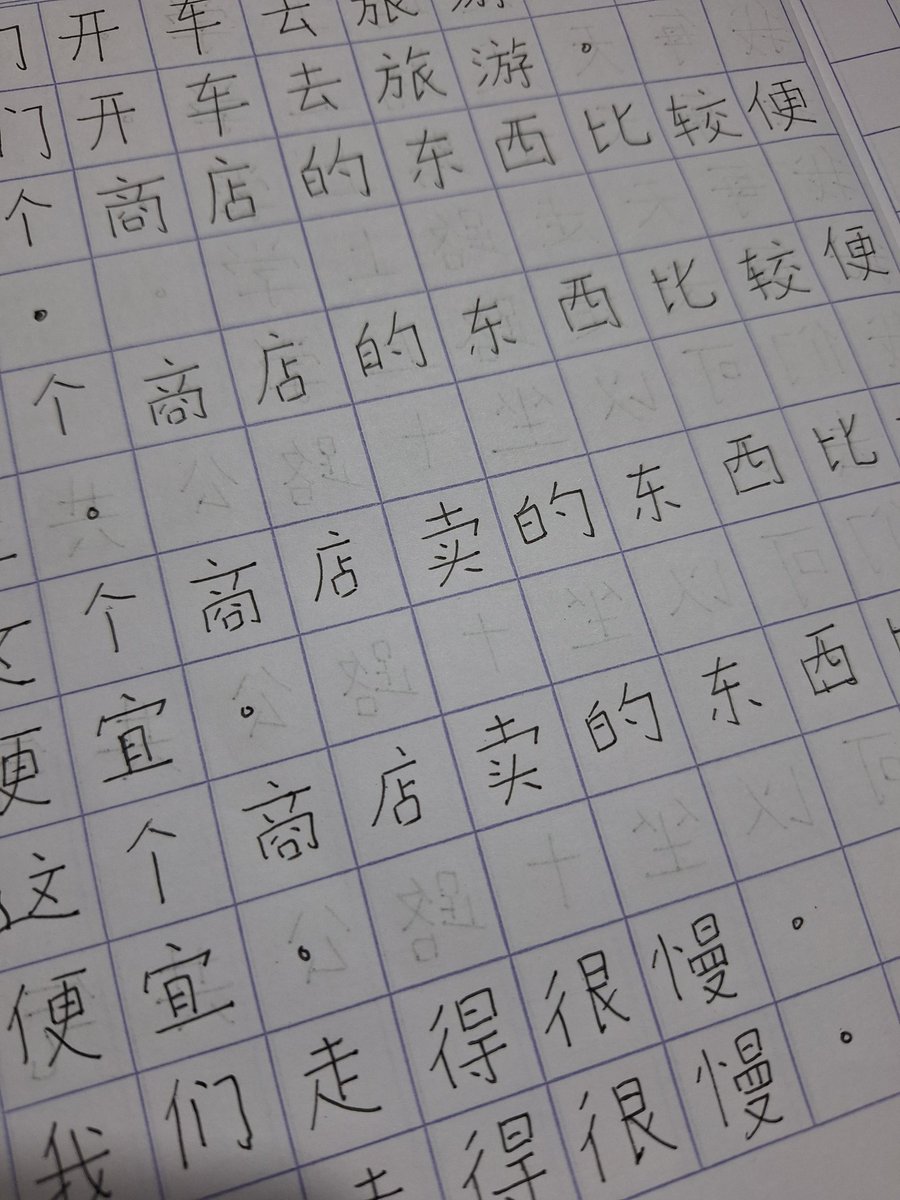 们开车去旅游
们开车去旅游。
个商店的东西比较便
。
个商店的东西比较便
。
这个商店卖的东西比
便宜。
这个商店卖的东西比
便宜。
我们走得很慢。
走得很慢。